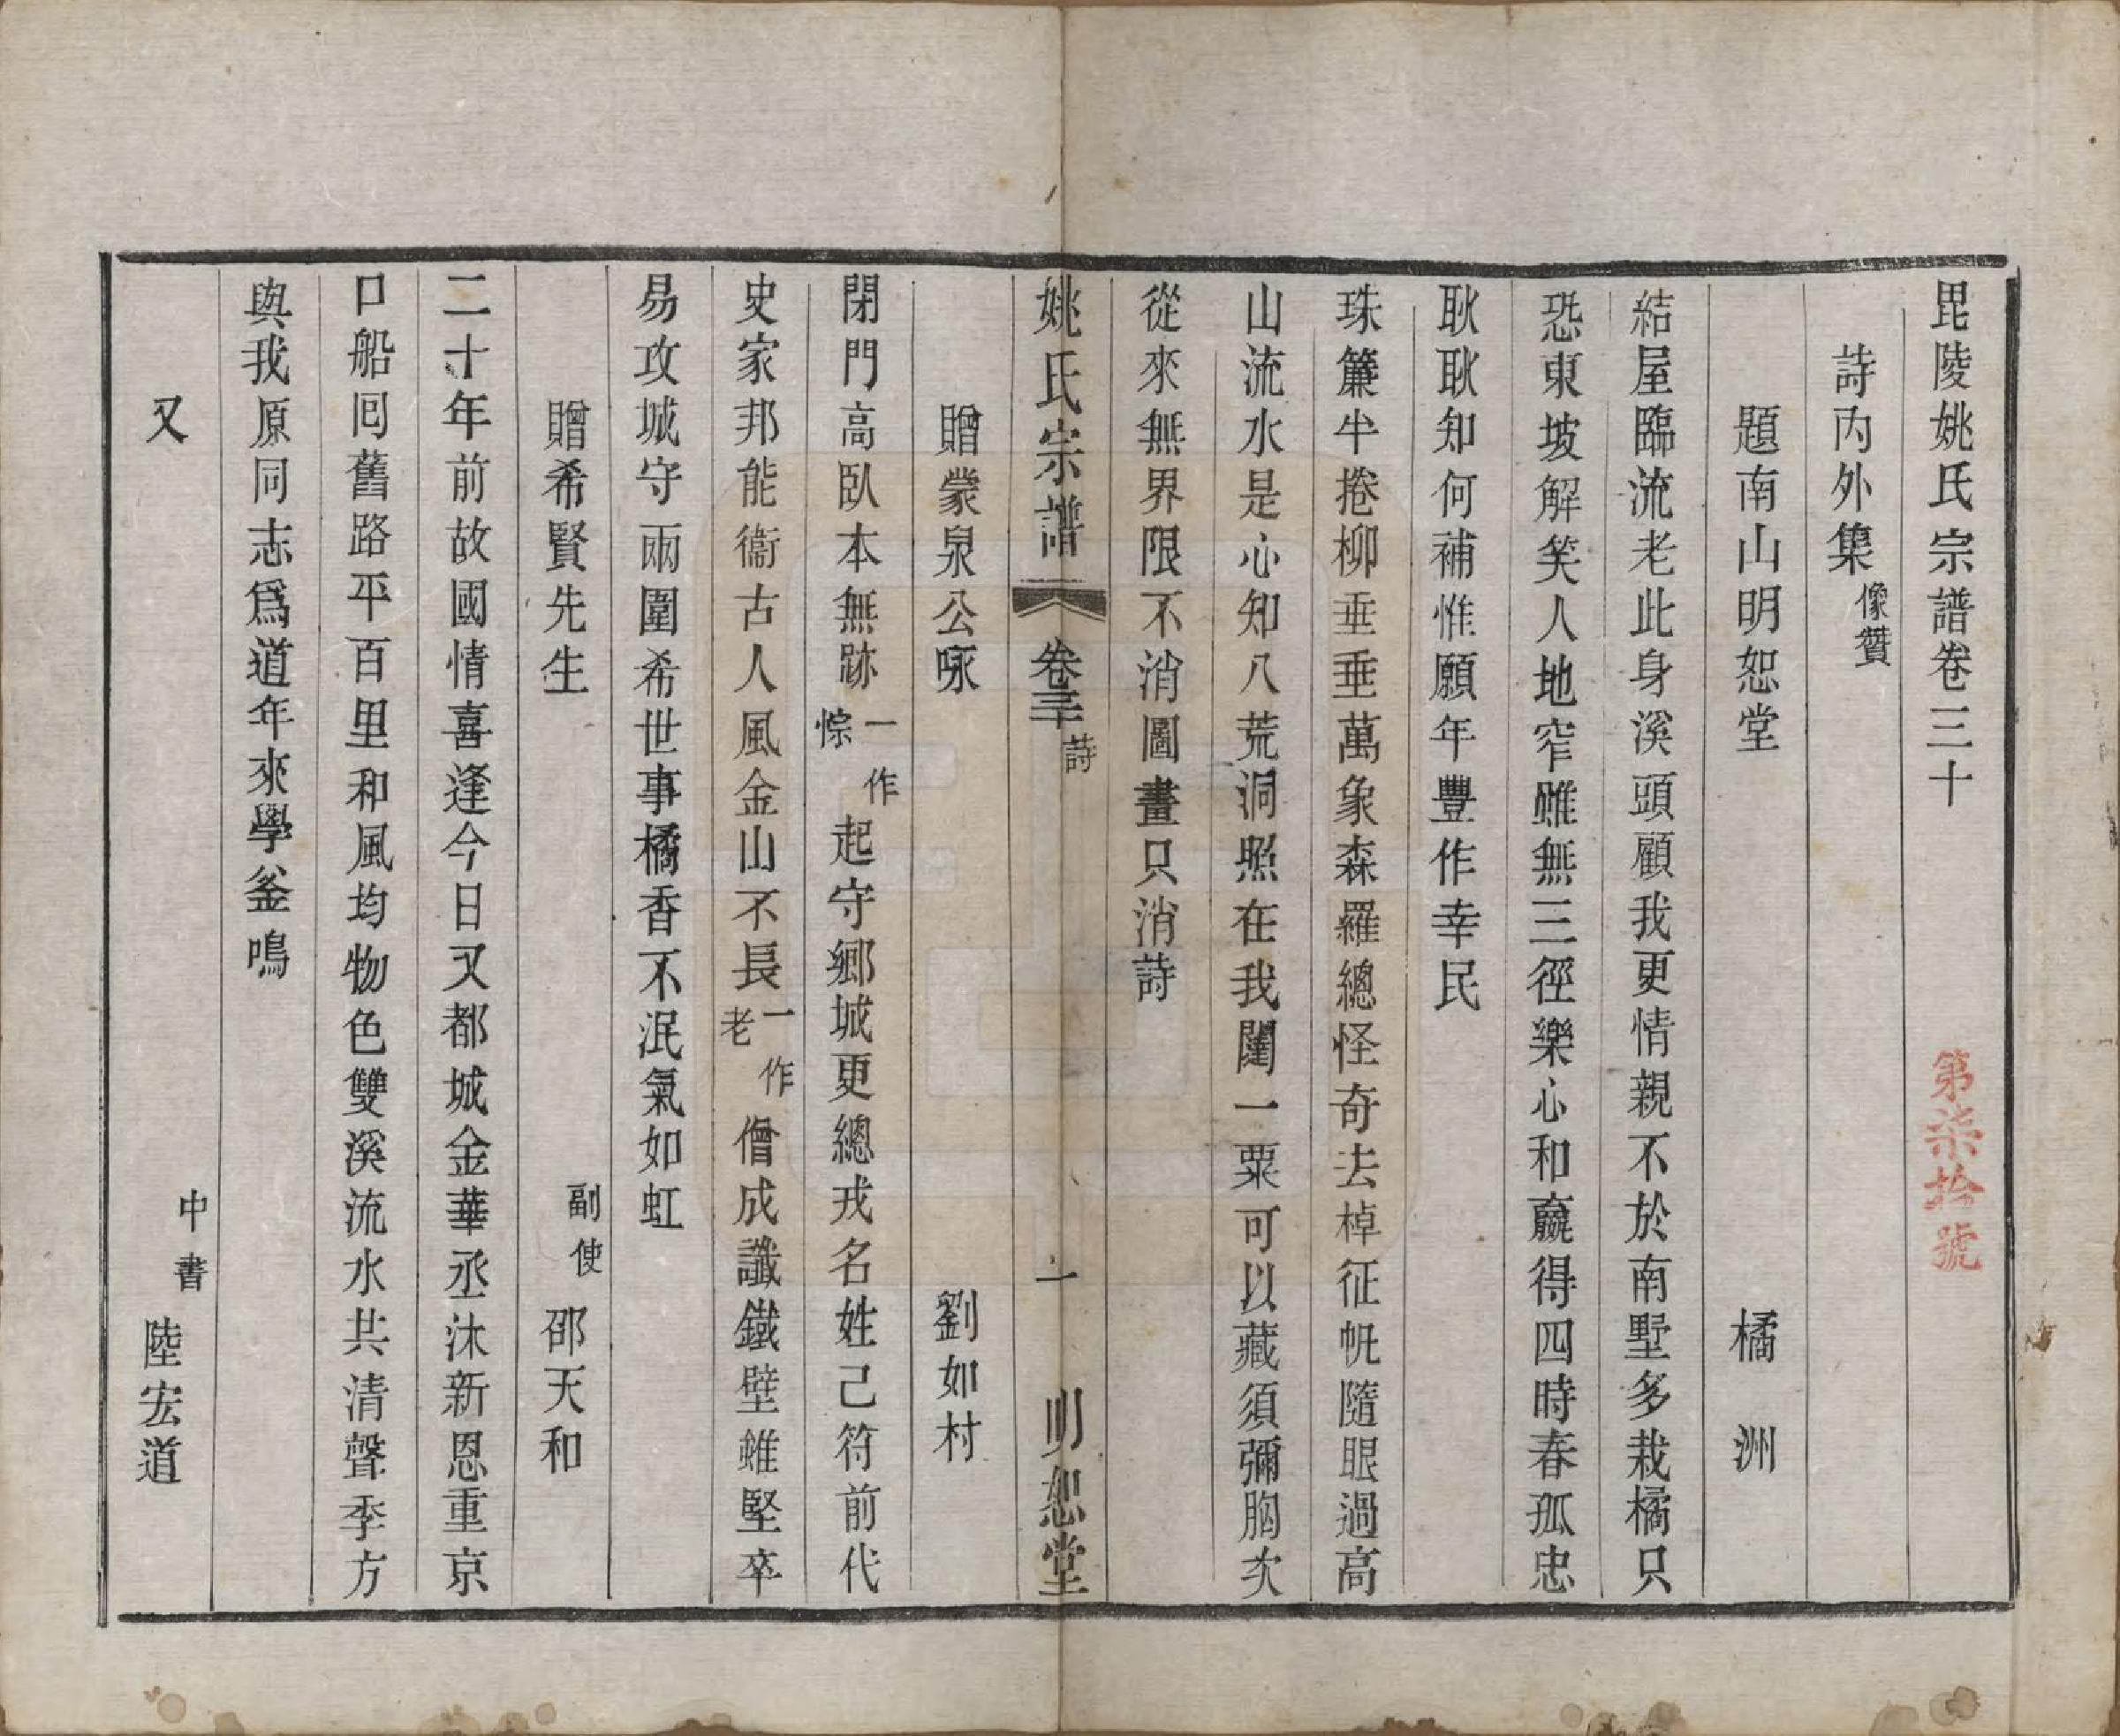 毘陵姚氏宗譜卷三十
第柒拾號
詩內外集像贊
題南山明恕堂　橘洲
結屋臨流老此身溪頭顧我更情親不於南墅多栽橘只
恐東坡解笑人地窄雖無三徑樂心和羸得四時春孤忠
耿耿知何補惟願年豐作幸民
珠簾半捲柳垂垂萬象森羅總怪奇去棹征帆隨眼過高
山流水是心知八荒洞照在我闥一粟可以藏須彌胸次
從來無界限不消圖畫只消詩
姚氏宗譜　卷三十　詩　一　明恕堂
贈蒙泉公咏　劉如村
閉門高臥本無跡一作悰起守鄉城更總戎名姓己符前代
史家邦能衞古人風金山不長一作老僧成讖鐵壁雖堅卒
易攻城守兩圍希世事橘香不泯氣如虹
贈希賢先生　副使　邵天和
二十年前故國情喜逢今日又都城金華丞沐新恩重京
口船囘舊路平百里和風均物色雙溪流水共清聲季方
與我原同志爲道年來學釜鳴
又　中書　陸宏道